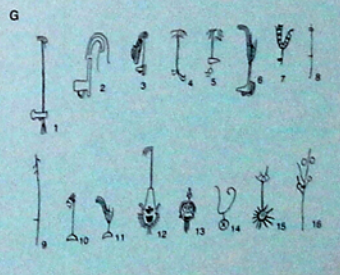 G
1 2 3 4 5 6 7 8
9 10 11 12 13 14 15 16